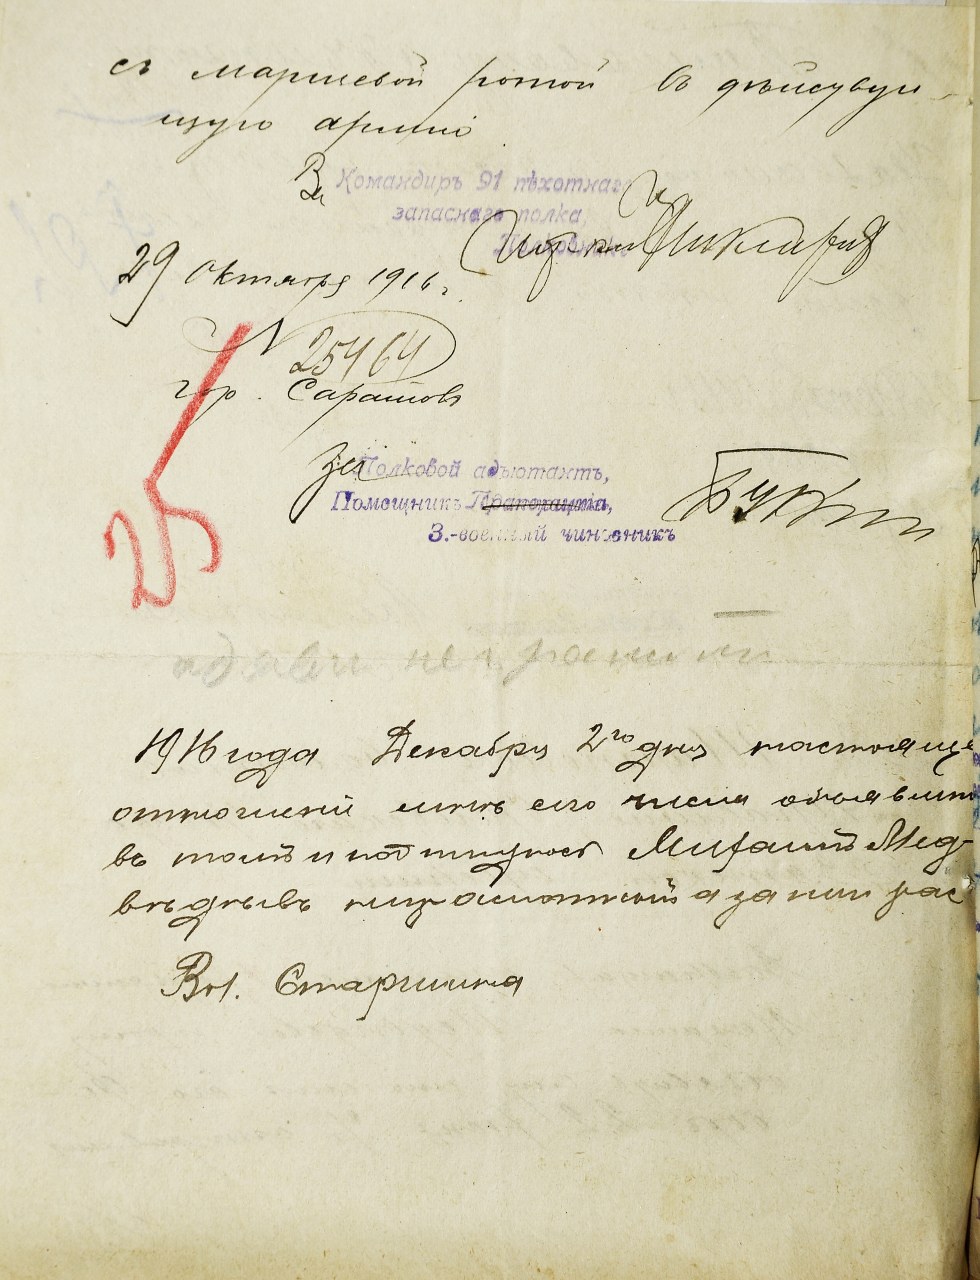 съ маршевой ротой въ дѣйствую-
щую армію
Командиръ 91 пѣхотнаго
запаснаго полка,
Полковникъ
29 Октября 1916 г.
N 25464
гор. Саратовъ
За Полковой адъютантъ,
Помощникъ Прапорщикъ,
З.-военный чиновникъ
1916 года Декабря 2го дня настояще
отношеній его числа объявлено
въ томъ и подпишусь Михаилъ Мед-
вѣдѣвъ неграмотный а за нин рас
Вол. Старшина